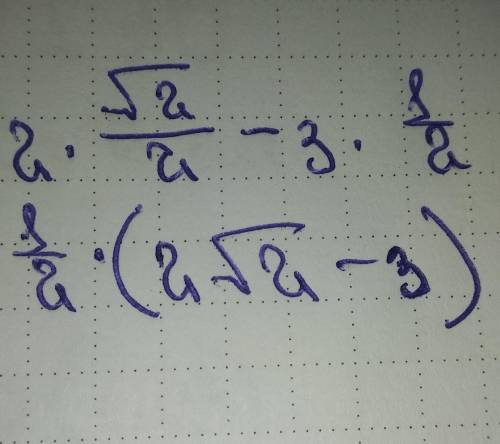 2 · √2/2 - 3 · 1/2
1/2 · (2√2 - 3)